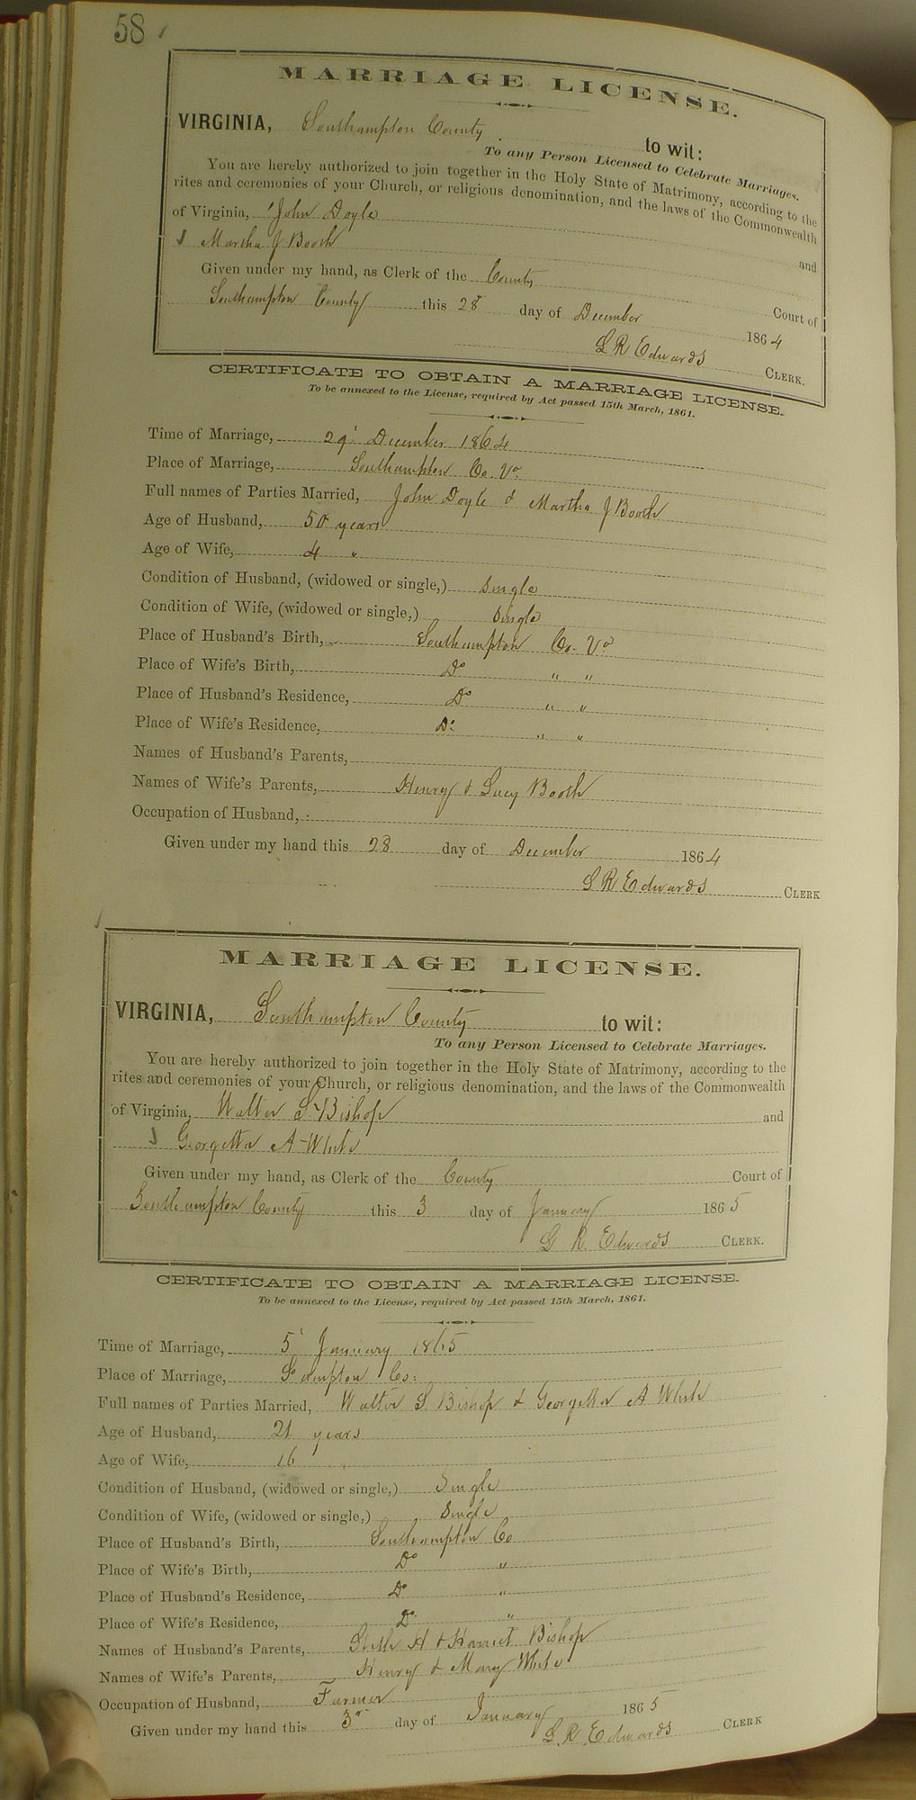 58
MARRIAGE LICENSE.
VIRGINIA, Southampton County to wit:
To any Person Licensed to Celebrate Marriages.
You are hereby authorized to join together in the Holy State of Matrimony, according to the
rites and ceremonies of your Church, or religious denomination, and the laws of the Commonwealth
of Virginia, John Doyle and
Martha J Booth
Given under my hand, as Clerk of the County Court of
Southampton County this 28 day of December 1864
L R Edwards CLERK.
CERTIFICATE TO OBTAIN A MARRIAGE LICENSE.
To be annexed to the License, required by Act passed 15th March, 1861.
Time of Marriage, 29 December 1864
Place of Marriage, Southampton Co. Va
Full names of Parties Married, John Doyle & Martha J Booth
Age of Husband, 50 years
Age of Wife, 4 "
Condition of Husband, (widowed or single,) Single
Condition of Wife, (widowed or single,) Single
Place of Husband's Birth, Southampton Co. Va
Place of Wife's Birth, Do " "
Place of Husband's Residence, Do " "
Place of Wife's Residence, Do " "
Names of Husband's Parents,
Names of Wife's Parents, Henry & Lucy Booth
Occupation of Husband,
Given under my hand this 28 day of December 1864
L R Edwards CLERK
MARRIAGE LICENSE.
VIRGINIA, Southampton County to wit:
To any Person Licensed to Celebrate Marriages.
You are hereby authorized to join together in the Holy State of Matrimony, according to the
rites and ceremonies of your Church, or religious denomination, and the laws of the Commonwealth
of Virginia, Walter S. Bishop and
Georgetta A White
Given under my hand, as Clerk of the County Court of
Southampton County this 3 day of January 1865
L R. Edwards CLERK.
CERTIFICATE TO OBTAIN A MARRIAGE LICENSE.
To be annexed to the License, required by Act passed 15th March, 1861.
Time of Marriage, 5 January 1865
Place of Marriage, So ampton Co:
Full names of Parties Married, Walter S. Bishop & Georgetta A White
Age of Husband, 21 years
Age of Wife, 16
Condition of Husband, (widowed or single,) Single
Condition of Wife, (widowed or single,) Single
Place of Husband's Birth, Southampton Co
Place of Wife's Birth, Do "
Place of Husband's Residence, Do "
Place of Wife's Residence, Do "
Names of Husband's Parents, H & Harriet Bishop
Names of Wife's Parents, Henry & Mary White
Occupation of Husband, Farmer
Given under my hand this 3 day of January 1865
L. R. Edwards CLERK